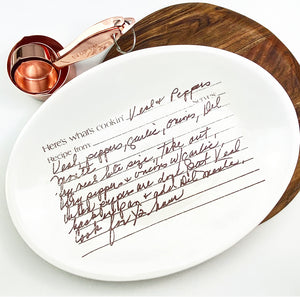 Here's what's cookin' Veal & Peppers
Recipe from Serves
Veal, peppers, garlic, onions, Oil
fry veal bite size, take out,
fry peppers & onions w/ garlic,
until peppers are done, put Veal
back in pan & add
cook for ½ hour